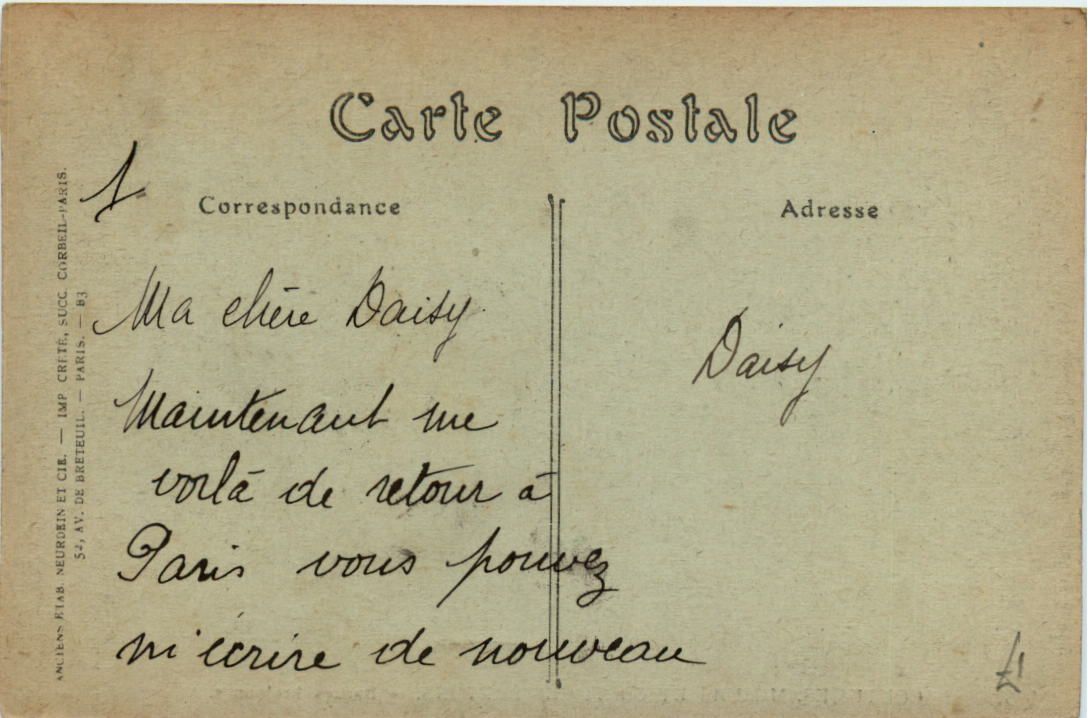 Carte Postale
Correspondance
Adresse
1
Ma chère Daisy
Maintenant me
voilà de retour à
Paris vous pouvez
m'écrire de nouveau
Daisy
ANCIENS ETAB. NEURDEIN ET CIE. — IMP. CRÉTÉ, SUCC. CORBEIL-PARIS.
52, AV. DE BRETEUIL. — PARIS. — B3
£1